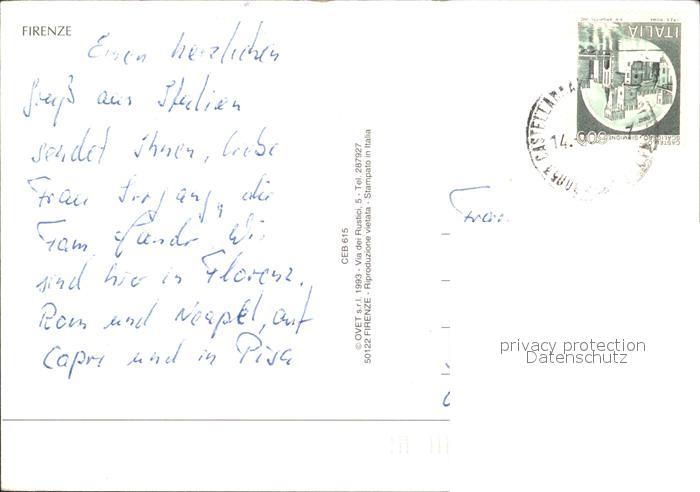 FIRENZE
Einen herzlichen
Gruß aus Italien
sendet Ihnen, liebe
Frau
Fam. Wir
sind hier in Florenz.
Rom und Neapel, auf
Capri und in Pisa
CEB 615
© OVET s.r.l. 1993 - Via dei Rustici, 5 - Tel. 287927
50122 FIRENZE - Riproduzione vietata - Stampato in Italia
ITALIA
14.
Frau
privacy protection
Datenschutz